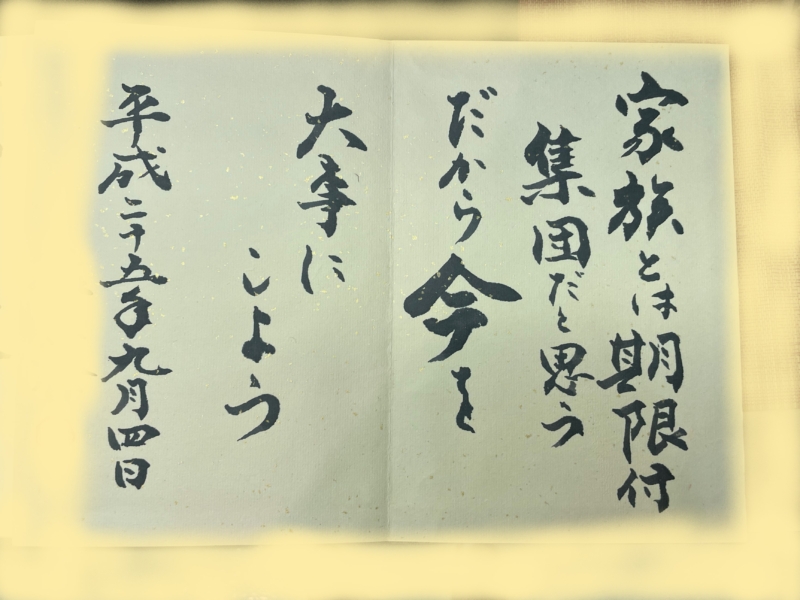 家族とは期限付
集団だと思う
だから今を
大事に
しよう
平成二十五年九月四日